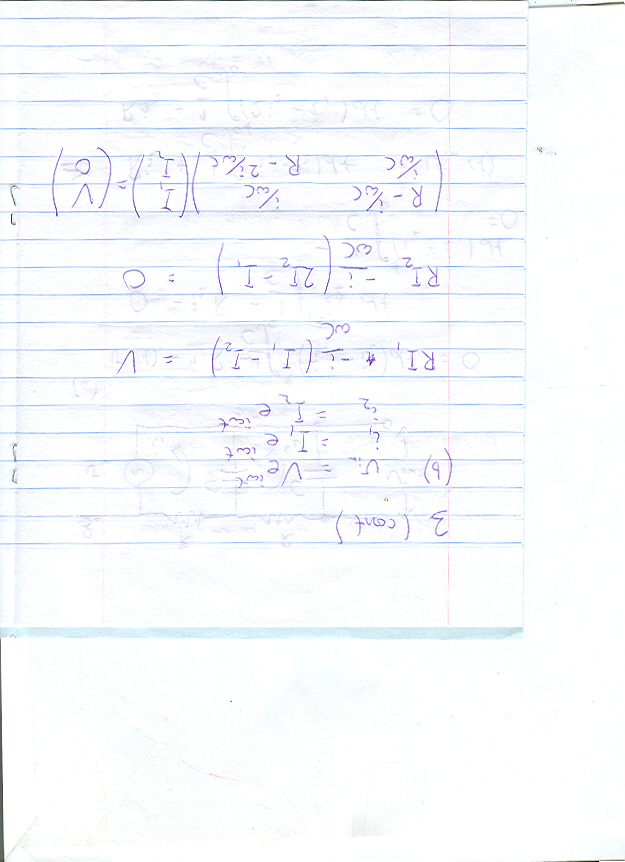 3 (cont)
(b) Vin = V e^{iωt}
i₁ = I₁ e^{iωt}
i₂ = I₂ e^{iωt}
RI₁ - i/ωC (I₁ - I₂) = V
RI₂ - i/ωC (2I₂ - I₁) = 0
(R - i/ωC i/ωC) (I₁) = (V)
(i/ωC R - 2i/ωC) (I₂) (0)